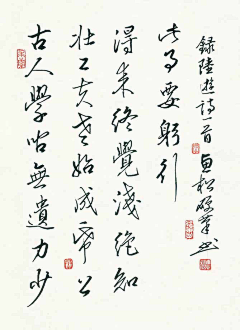 古人學問無遺力少
壯工夫老始成帋上
得來終覺淺絕知
此事要躬行
錄陸游詩一首 松硬筆書